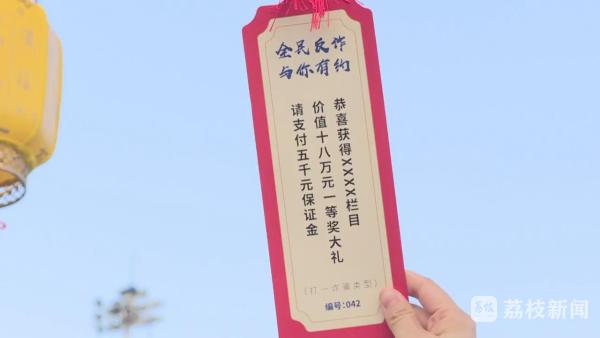 全民反诈
与你有约
恭喜获得XXXX栏目
价值十八万元一等奖大礼
请支付五千元保证金
(打一诈骗类型)
编号:042
荔枝新闻